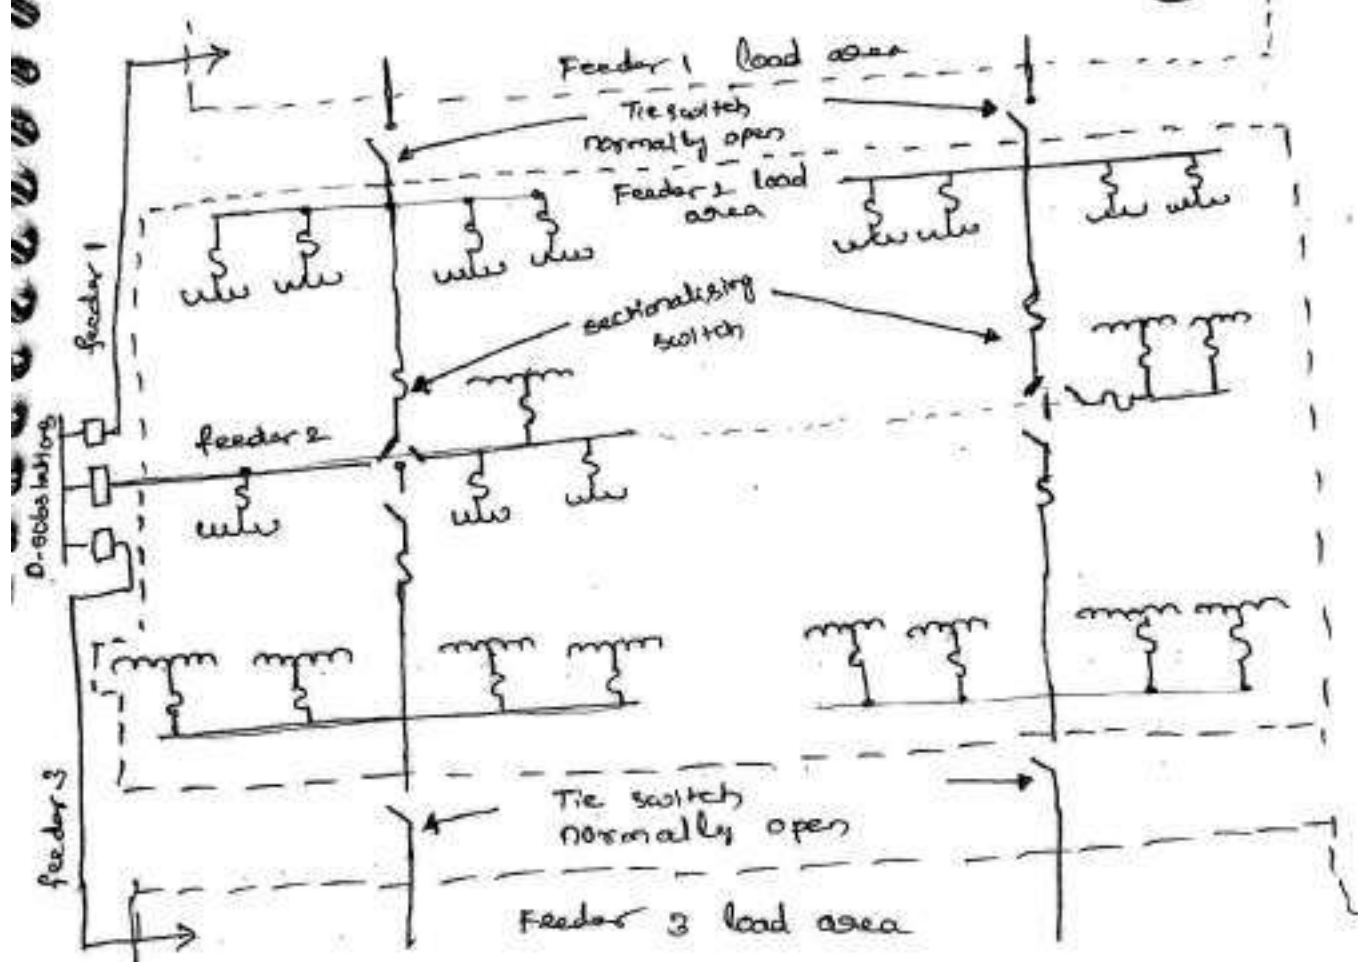 Feeder 1 load area
Tie switch
normally open
Feeder 2 load
area
feeder 1
sectionalising
switch
feeder 2
D-substations
Tie switch
normally open
feeder 3
Feeder 3 load area